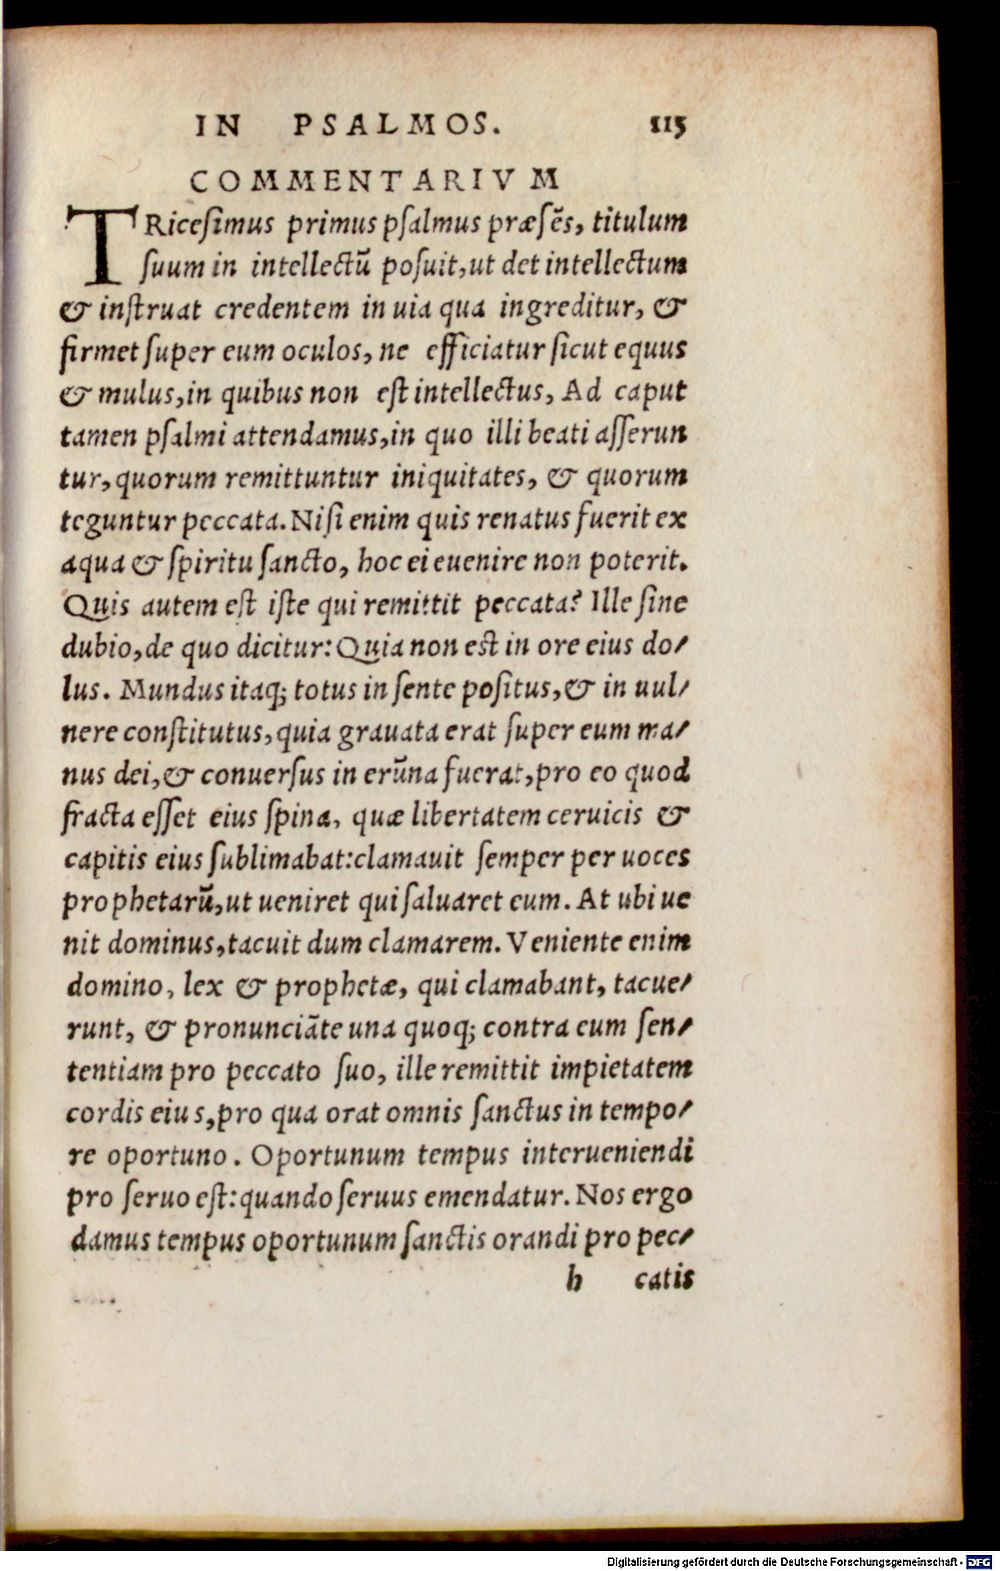 IN PSALMOS. 115
COMMENTARIVM
TRicesimus primus psalmus præsẽs, titulum
suum in intellectũ posuit, ut det intellectum
& instruat credentem in uia qua ingreditur, &
firmet super eum oculos, ne efficiatur sicut equus
& mulus, in quibus non est intellectus, Ad caput
tamen psalmi attendamus, in quo illi beati asserun
tur, quorum remittuntur iniquitates, & quorum
teguntur peccata. Nisi enim quis renatus fuerit ex
aqua & spiritu sancto, hoc ei euenire non poterit.
Quis autem est iste qui remittit peccata? Ille sine
dubio, de quo dicitur: Quia non est in ore eius do-
lus. Mundus itaq; totus in sente positus, & in uul-
nere constitutus, quia grauata erat super eum ma-
nus dei, & conuersus in erũna fuerat, pro eo quod
fracta esset eius spina, quæ libertatem ceruicis &
capitis eius sublimabat: clamauit semper per uoces
prophetarũ, ut ueniret qui saluaret eum. At ubi ue
nit dominus, tacuit dum clamarem. Veniente enim
domino, lex & prophetæ, qui clamabant, tacue-
runt, & pronunciãte una quoq; contra eum sen-
tentiam pro peccato suo, ille remittit impietatem
cordis eius, pro qua orat omnis sanctus in tempo-
re oportuno. Oportunum tempus interueniendi
pro seruo est: quando seruus emendatur. Nos ergo
damus tempus oportunum sanctis orandi pro pec-
h catis
Digitalisierung gefördert durch die Deutsche Forschungsgemeinschaft - DFG